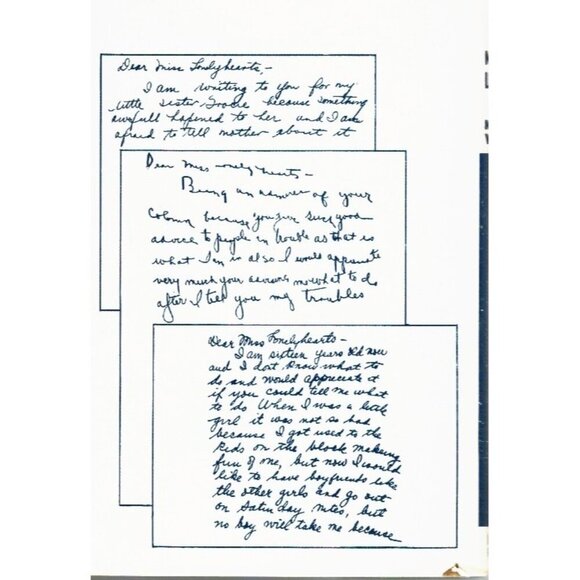 Dear Miss Lonelyhearts,-
I am writing to you for my
little sister Gracie because something
awfull hapened to her and I am
afraid to tell mother about it
Dear Miss Lonelyhearts-
Being an admirer of your
column because you give such good
advice to people in trouble as that is
what I am in also I would appreciate
very much your advising me what to do
after I tell you my troubles
Dear Miss Lonelyhearts-
I am sixteen years old now
and I dont know what to
do and would appreciate it
if you could tell me what
to do When I was a little
girl it was not so bad
because I got used to the
kids on the block makeing
fun of me, but now I would
like to have boyfriends like
the other girls and go out
on Saturday nites, but
no boy will take me because